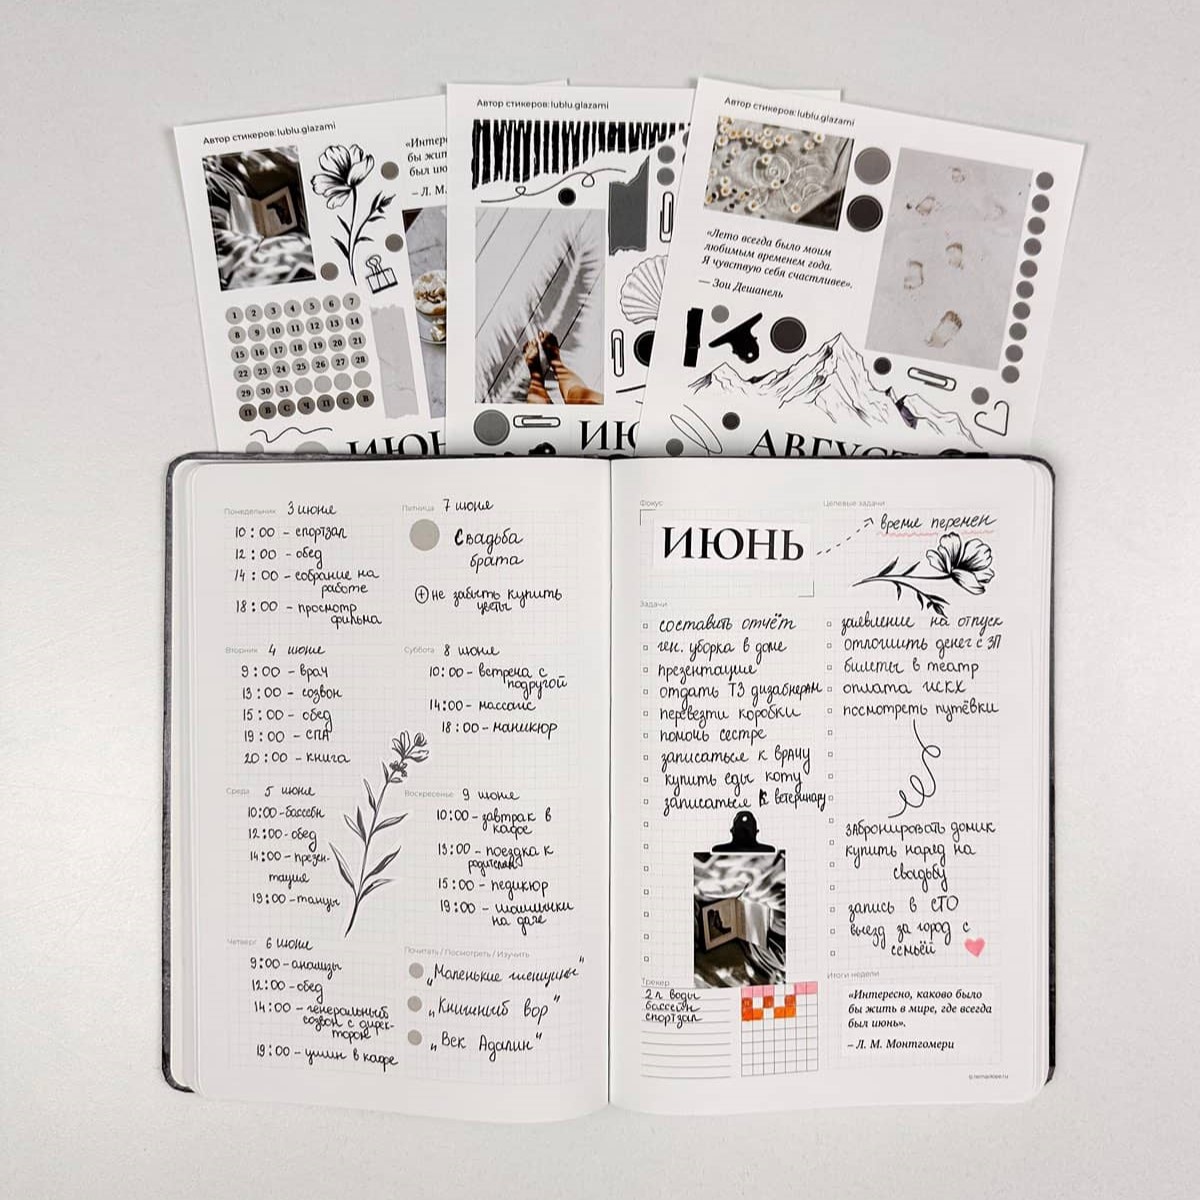 Автор стикеров: lublu.glazami
«Интер
бы жит
был ию
– Л. М.
1 2 3 4 5 6 7
8 9 10 11 12 13 14
15 16 17 18 19 20 21
22 23 24 25 26 27 28
29 30 31
П В С Ч П С В
ИЮН
Автор стикеров: lublu.glazami
ИЮ
Автор стикеров: lublu.glazami
«Лето всегда было моим
любимым временем года.
Я чувствую себя счастливее».
— Зои Дешанель
АВГУСТ
Понедельник 3 июне
10:00 – спортзал
12:00 – обед
14:00 – собрание на
работе
18:00 – просмотр
фильма
Вторник 4 июне
9:00 – врач
13:00 – созвон
15:00 – обед
19:00 – СПА
20:00 – книга
Среда 5 июне
10:00 – бассейн
12:00 – обед
14:00 – презен-
тация
19:00 – танцы
Четверг 6 июне
9:00 – анализы
12:00 – обед
14:00 – генеральный
созвон с дирек-
тором
19:00 – ужин в кафе
Пятница 7 июне
Свадьба
брата
+ не забыть купить
цветы
Суббота 8 июне
10:00 – встреча с
подругой
14:00 – массаж
18:00 – маникюр
Воскресенье 9 июне
10:00 – завтрак в
кафе
13:00 – поездка к
родителям
15:00 – педикюр
19:00 – шашлыки
на даче
Почитать / Посмотреть / Изучить
„Маленькие женщины"
„Книжный вор"
„Век Адалин"
Фокус
ИЮНЬ
Целевые задачи
время перемен
Задачи
составить отчёт
ген. уборка в доме
презентация
отдать ТЗ дизайнерам
перевезти коробки
помочь сестре
записаться к врачу
купить еды коту
записаться к ветеринару
заявление на отпуск
отложить денег с ЗП
билеты в театр
оплата ЖКХ
посмотреть путёвки
забронировать домик
купить наряд на
свадьбу
запись в СТО
выезд за город с
семьёй
Трекер
2 л воды
бассейн
спортзал
Итоги недели
«Интересно, каково было
бы жить в мире, где всегда
был июнь».
– Л. М. Монтгомери